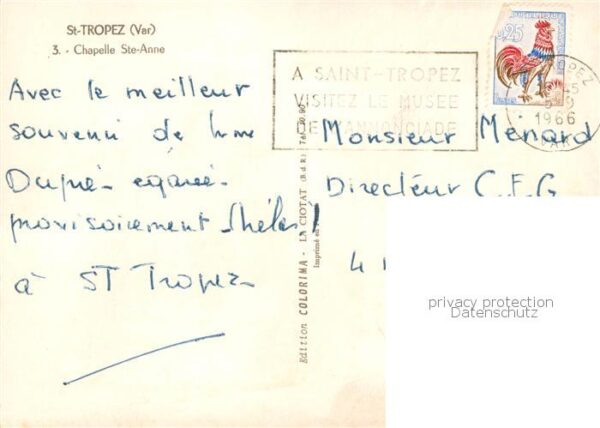 St-TROPEZ (Var)
3. - Chapelle Ste-Anne
Avec le meilleur
souvenir de Mme
Dupré - égarée -
provisoirement (hélas!)
à ST Tropez
Edition COLORIMA - LA CIOTAT (B.d.R)
Imprimé en
0,25
A SAINT-TROPEZ
VISITEZ LE MUSEE
DE L'ANNONCIADE
1966
VAR
Monsieur Menard
Directeur C.E.G
4
privacy protection
Datenschutz